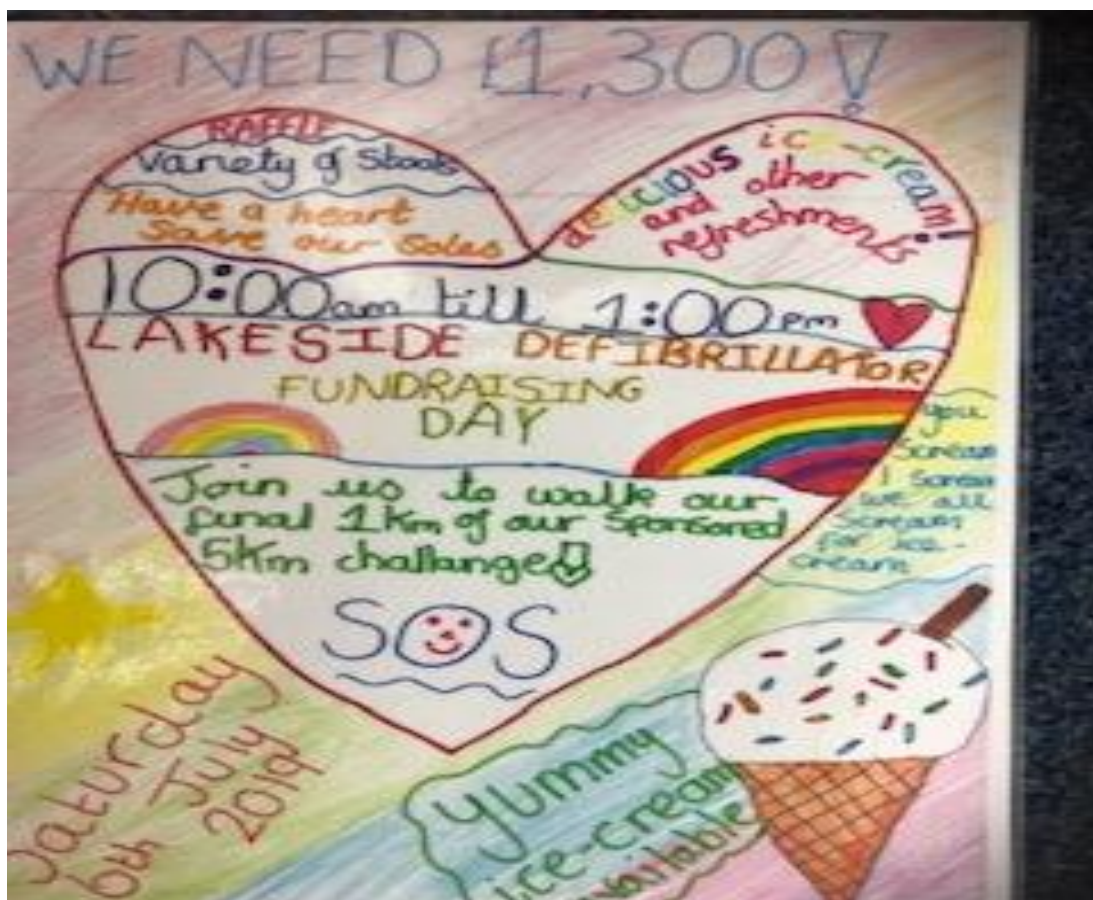 WE NEED £1,300!
RAFFLE
Variety of Stools
Have a heart
Save our Soles
delicious ice-cream!
and other
refreshments
10:00am till 1:00pm
LAKESIDE DEFIBRILLATOR
FUNDRAISING
DAY
Join us to walk our
final 1km of our Sponsored
5km challange!
SOS
you
Scream
I Scream
we all
Scream
for ice-
cream
Saturday
6th July
2019
Yummy
ice-cream
available